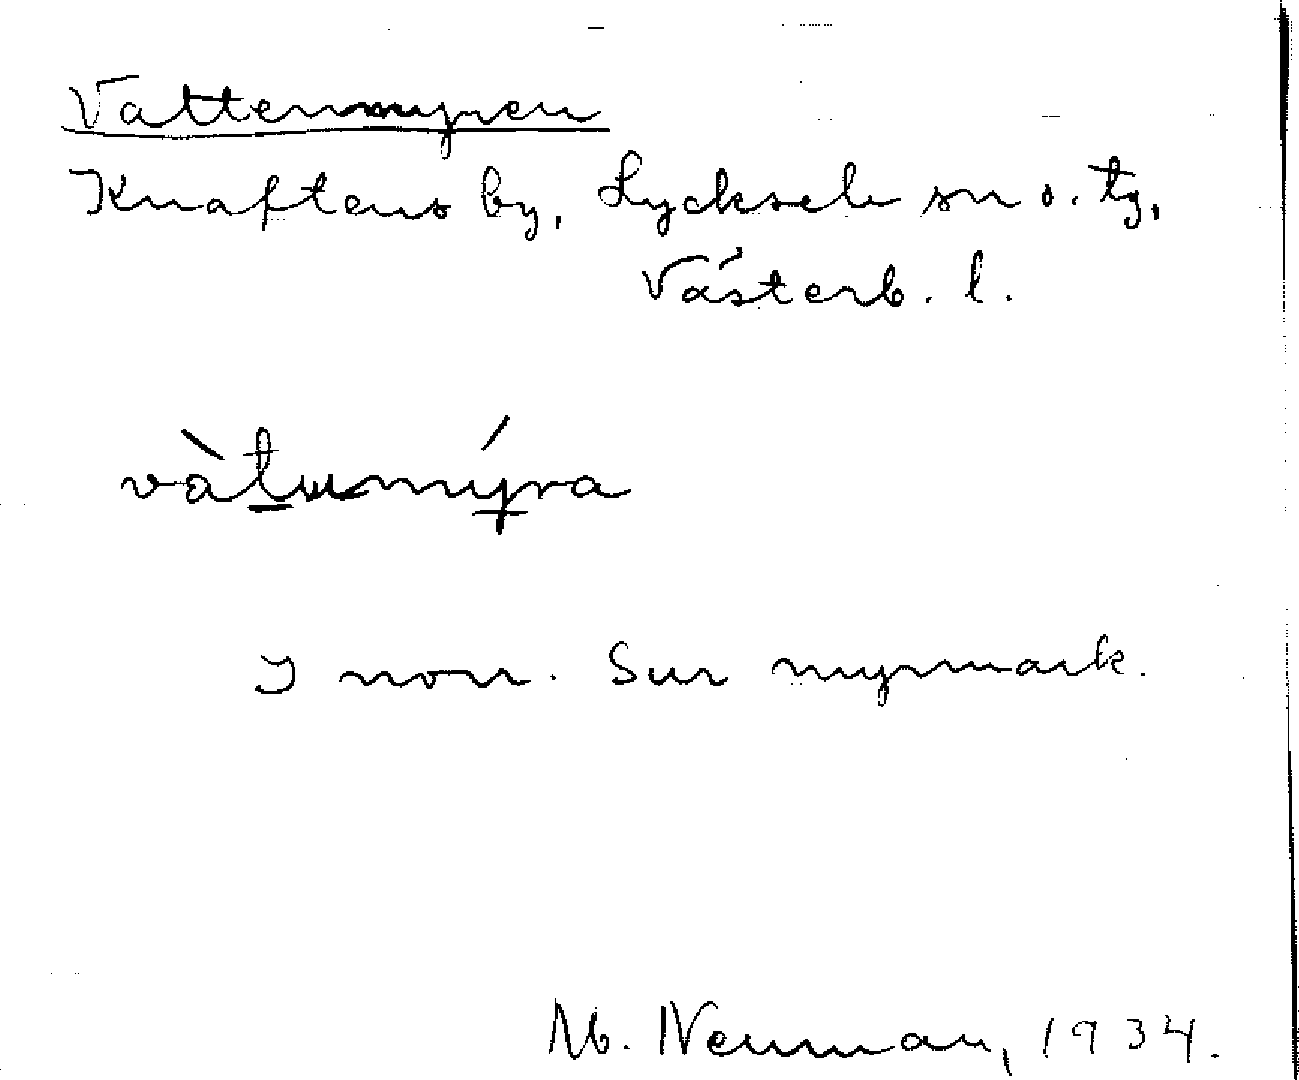 Vattenmyren
Knaftens by, Lycksele sn o. tg,
Västerb. l.
vàtnmýra
I norr. Sur myrmark.
M. Neuman, 1934.